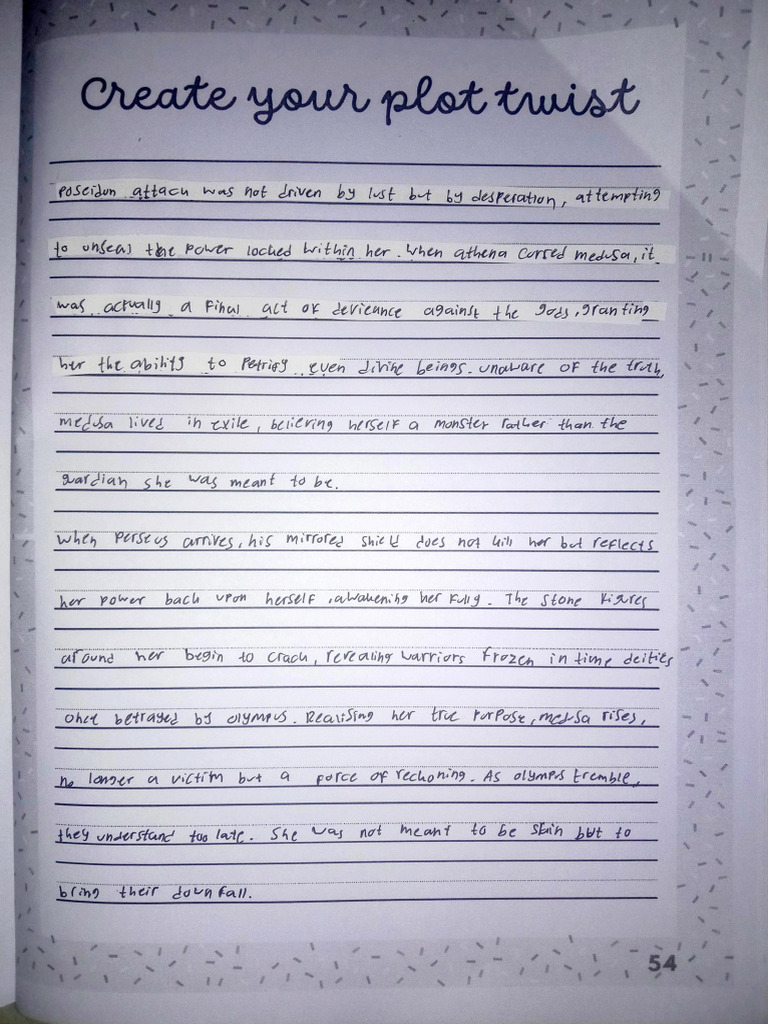 Create your plot twist
Poseidon attack was not driven by lust but by desperation, attempting
to unseal the power locked within her. When athena cursed medusa, it
was actually a final act of devicance against the gods, granting
her the ability to Petrify even divine beings. unaware of the truth,
medusa lived in exile, believing herself a monster rather than the
guardian she was meant to be.
When Perseus arrives, his mirrored shield does not kill her but reflects
her power back upon herself, awakening her fully. The stone figures
around her begin to crack, revealing warriors frozen in time deities
once betrayed by olympus. Realising her true purpose, medusa rises,
no longer a victim but a force of reckoning. As olympus tremble,
they understand too late. She was not meant to be slain but to
bring their downfall.
54